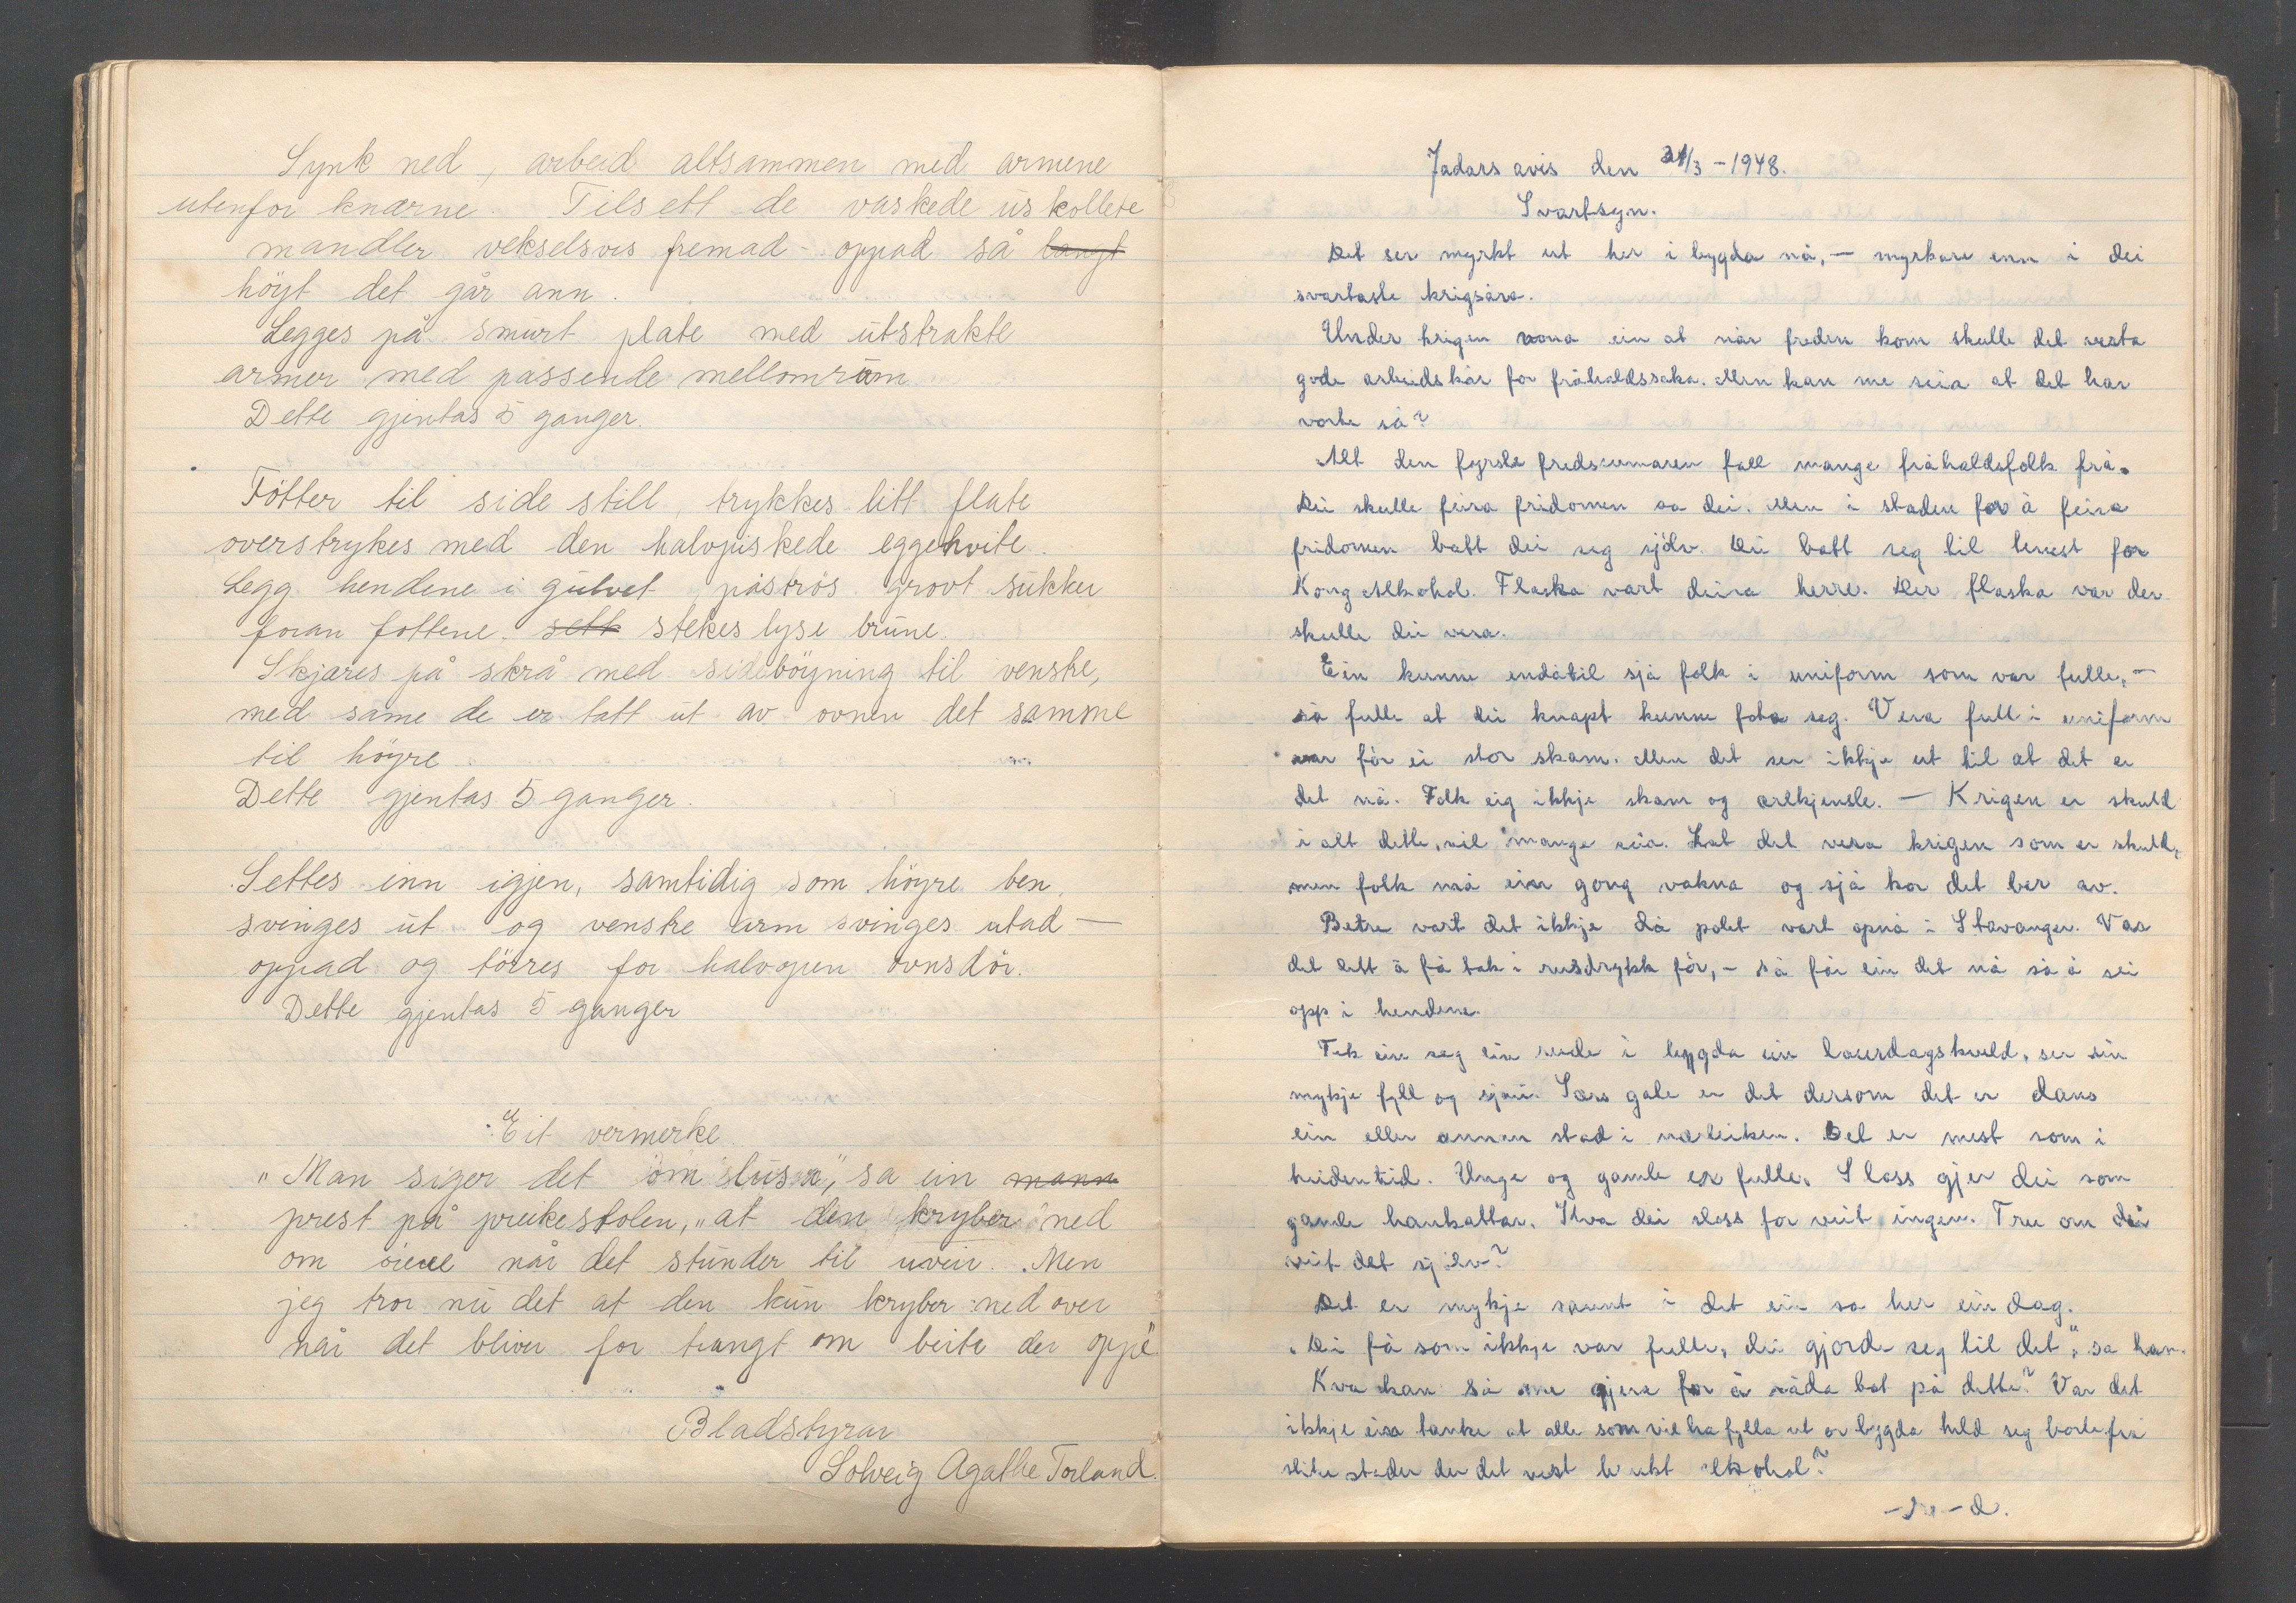 Synk ned, arbeid altsammen med armene
utenfor knærne. Tilsett de vaskede uskollete
mandler vekselsvis fremad - oppad så langt
höyt det går ann.
Legges på smurt plate med utstrakte
armer med passende mellomrum
Dette gjentas 5 ganger.
Fötter til side still, trykkes litt flate
overstrykes med den halvpiskede eggehvite.
Legg hendene i gulvet, påströs grovt sukker
foran föttene. sett stekes lyse brune.
Skjæres på skrå med sidebögning til venstre,
med same de er tatt ut av ovnen det samme
til höyre
Dette gjentas 5 ganger.
Settes inn igjen, samtidig som höyre ben
svinges ut og venstre arm svinges utad -
oppad og törres for halvopen ovnsdör.
Dette gjentas 5 ganger
Eit vermerke
"Man siger det om lusa", sa ein mann
prest på preikestolen, "at den kryber ned
om når det stunder til uveir. Men
jeg tror nu det at den kun kryber nedover
når det bliver for trangt om beite der oppe"
Bladstyrar
Solveig Agathe Torland.
Jadars avis den 31/3 - 1948.
Svartsyn.
Det ser myrkt ut her i bygda nå, - myrkare enn i dei
svartaste krigsåra.
Under krigen vona ein at når freden kom skulle det verta
gode arbeidskår for fråhaldssaka. Men kan me seia at det har
vorte så?
Alt den fyrste fredssumaren fall mange fråhaldsfolk frå.
Dei skulle feira fridomen sa dei. Men i staden for å feira
fridomen batt dei seg sjölv. Dei batt seg til tenest for
Kong Alkohol. Flaska vart deira herre. Der flaska var der
skulle dei vera.
Ein kunne endåtil sjå folk i uniform som var fulle, -
så fulle at dei knapt kunne fota seg. Vera full i uniform
var för ei stor skam. Men det ser ikkje ut til at det er
det nå. Folk eig ikkje skam og ærekjensle. - Krigen er skuld
i alt dette, vil mange seia. Lat det vera krigen som er skuld,
men folk må ein gong vakna og sjå kor det ber av.
Betre vart det ikkje då polet vart opna i Stavanger. Var
det lett å få tak i rusdrykk för, - så får ein det nå så å sei
opp i hendene.
Tek ein seg ein runde i bygda ein laurdagskveld, ser ein
mykje fyll og sjau. Særs gale er det dersom det er dans
ein eller annen stad i nærleiken. Det er mest som i
heidentid. Unge og gamle er fulle. Sloss gjer dei som
gamle hankattar. Kva dei sloss for veit ingen. Tru om dei
veit det sjölv?
Det er mykje sannt i det ein sa her ein dag.
"Dei få som ikkje var fulle, dei gjorde seg til det", sa han.
Kva kan så me gjera for å råda bot på dette? Var det
ikkje ein tanke at alle som vil ha fylla ut or bygda held seg borte frå
slike stader der det vert brukt alkohol?